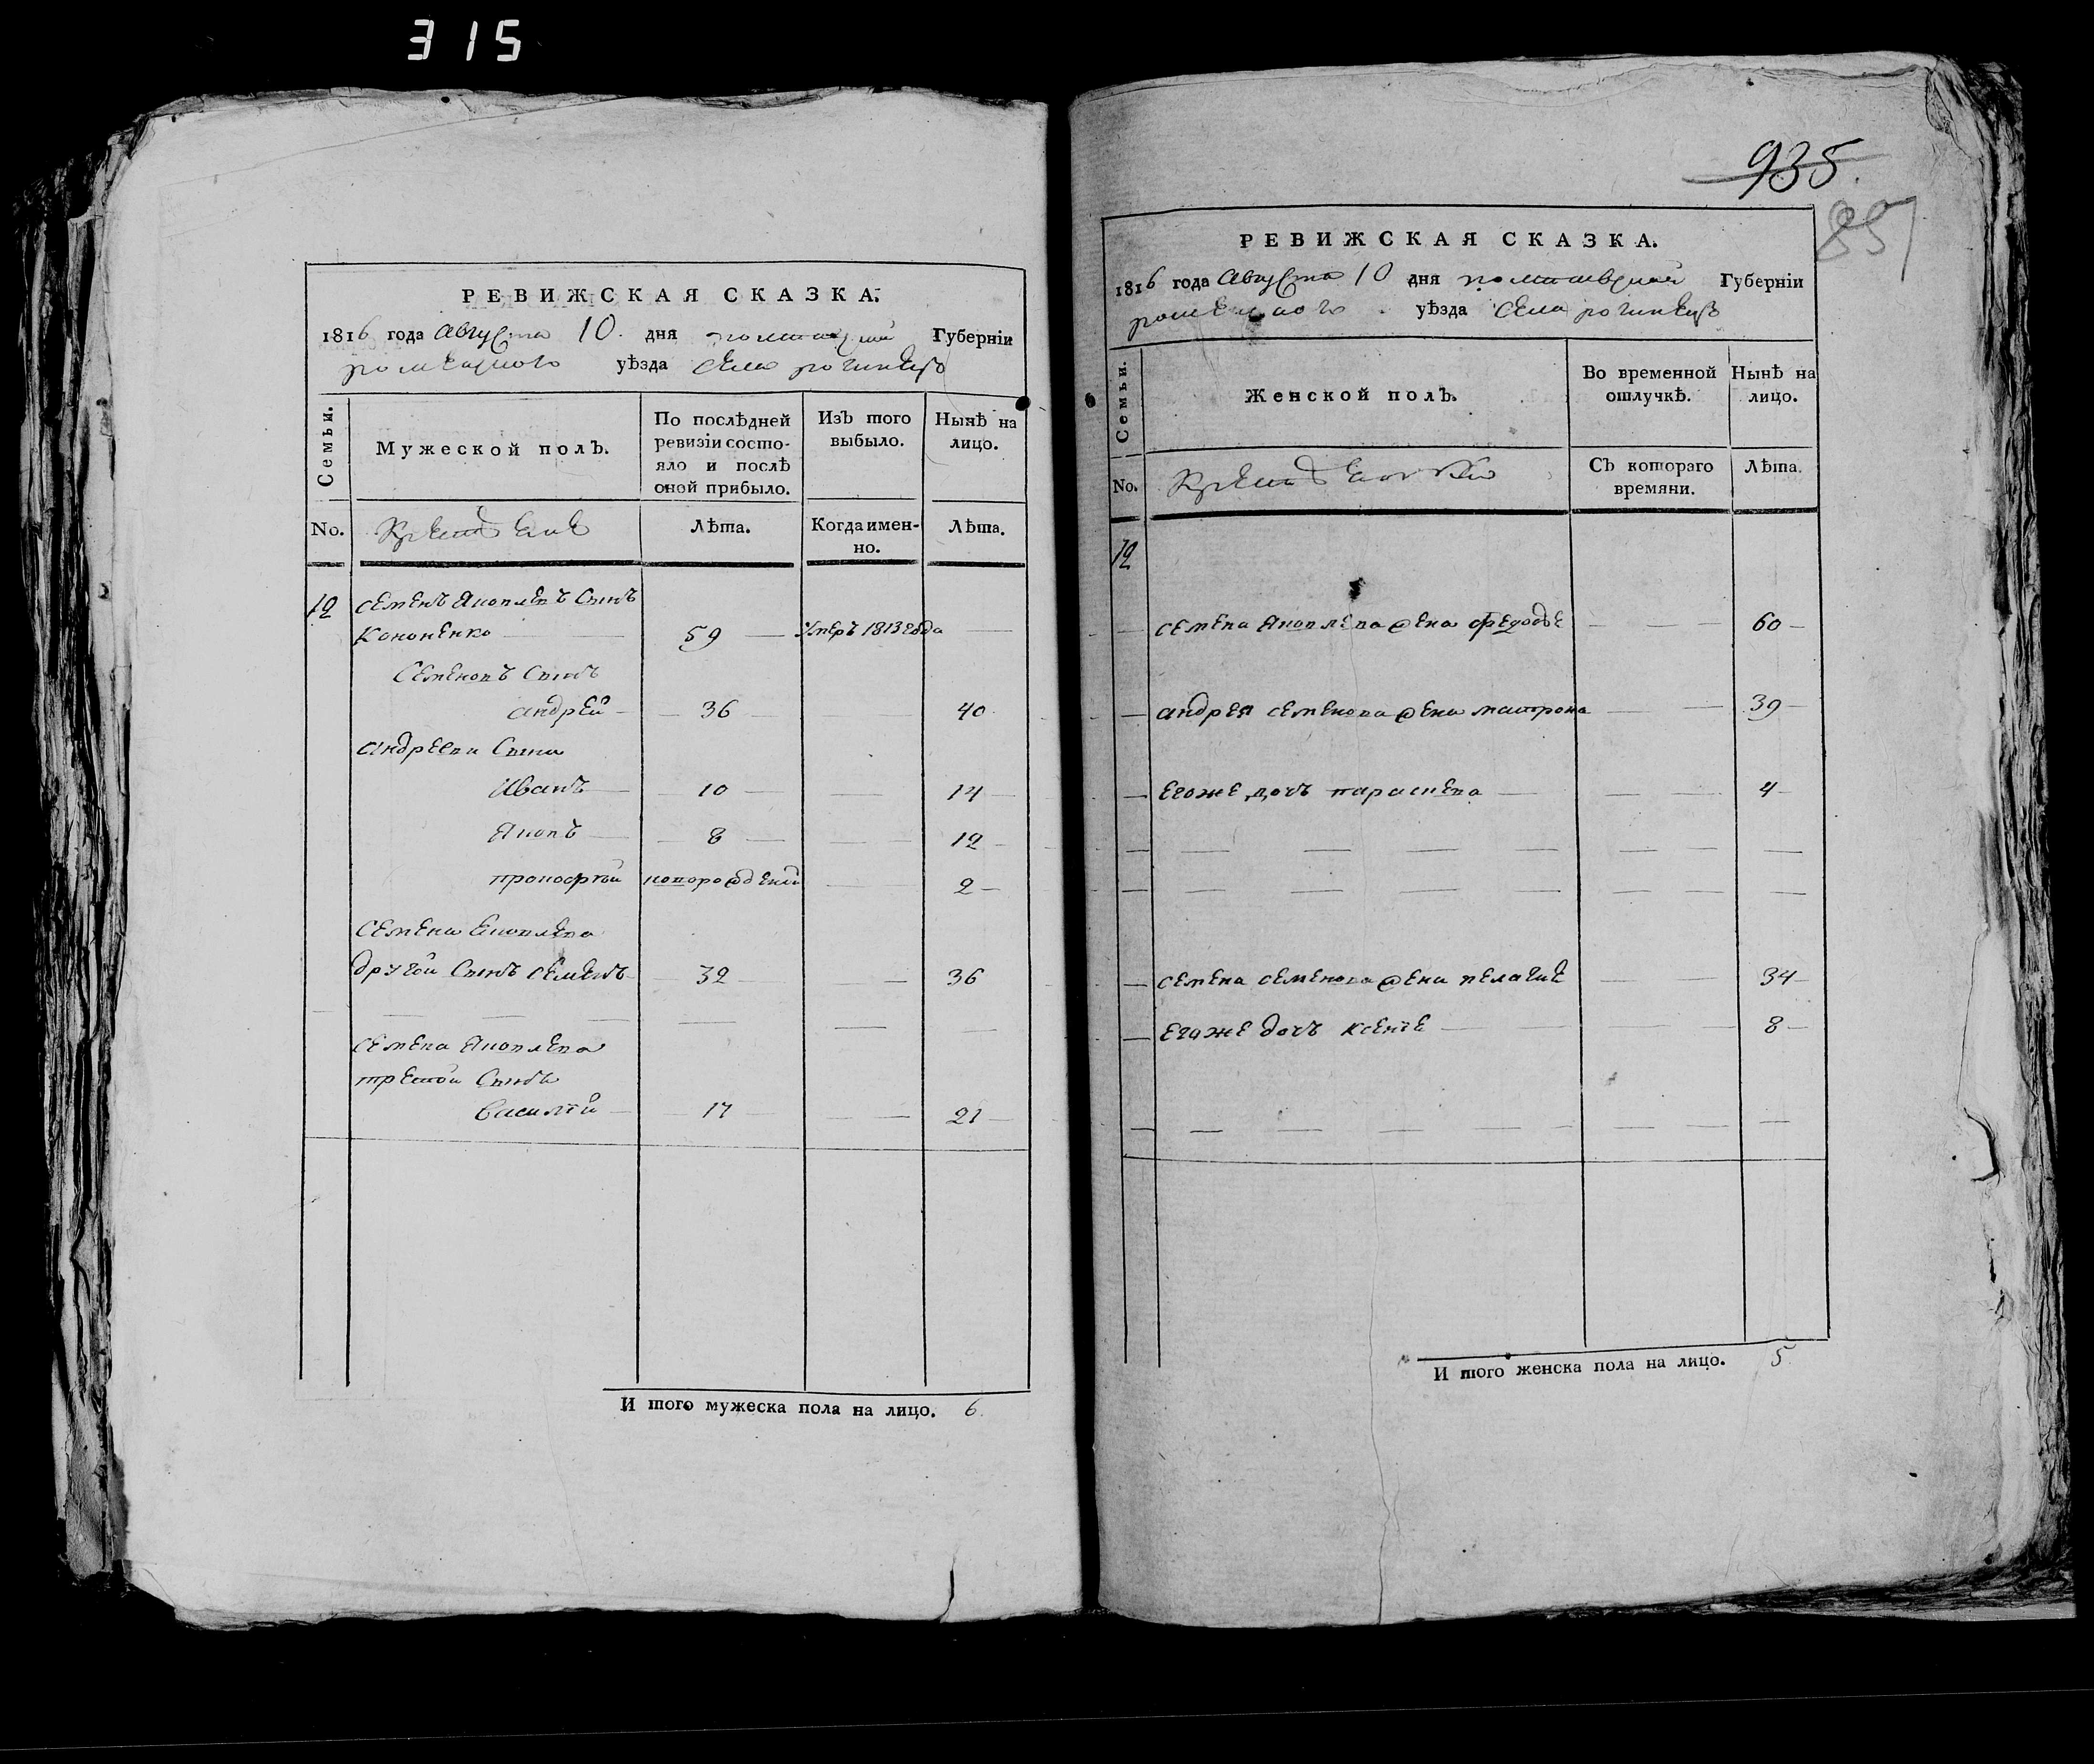 315
РЕВИЖСКАЯ СКАЗКА.
1816 года Августа 10 дня полтавской Губерніи
роменского уѣзда села рогинецъ
Семьи.
Мужеской полъ.
По послѣдней ревизіи состо-
яло и послѣ
оной прибыло.
Изъ того
выбыло.
Нынѣ на
лицо.
No.
Крестьяне
Лѣта.
Когда имен-
но.
Лѣта.
12 семенъ Яковлевъ Сынъ
Кононенко 59 умеръ 1813 года
Семеновъ Сынъ
андрей 36 40
андреева Сыны
Иванъ 10 14
Яковъ 8 12
прокофій новорожденій 2
Семена Яковлева
другой Сынъ семенъ 32 36
семена Яковлева
третой Сынъ
Василій 17 21
И того мужеска пола на лицо. 6.
935.
РЕВИЖСКАЯ СКАЗКА.
1816 года Августа 10 дня полтавской Губерніи
роменского уѣзда села рогинецъ
Семьи.
Женской полъ.
Во временной
отлучкѣ.
Нынѣ на
лицо.
No.
Съ котораго
времяни.
Лѣта.
12
семена Яковлева жена федодъе 60
андрея семенова жена матрона 39
егоже дочъ параскева 4
семена семенова жена пелагие 34
егоже дочъ ксеніе 8
И того женска пола на лицо. 5.